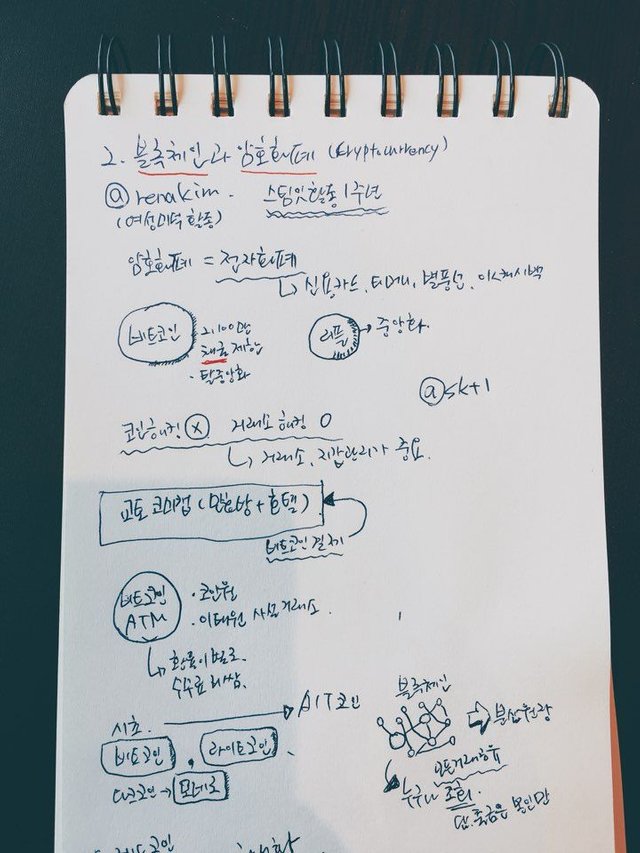 2. 블록체인과 암호화폐 (Cryptocurrency)
@renakim. 스팀잇활동 1주년
(여성미덕 활동)
암호화폐 = 전자화폐
↳ 신용카드, 티머니, 별풍선,
비트코인 2100만
채굴 제한
· 탈중앙화
리플 → 중앙화.
@sk+1
코인해킹 X 거래소 해킹 O
↳ 거래소, 지갑관리가 중요.
교토 코미캡 (만화방 + 호텔)
비트코인 결제
비트코인 ATM
· 코인원
· 이태원 사설거래소.
↳ 환율이 별로.
수수료 비쌈.
시초. → AIT코인
비트코인, 라이트코인.
다크코인 → 모네로
블록체인 ⇒ 분산원장
모든거래공유
누구나 조회.
단, 출금은 본인만